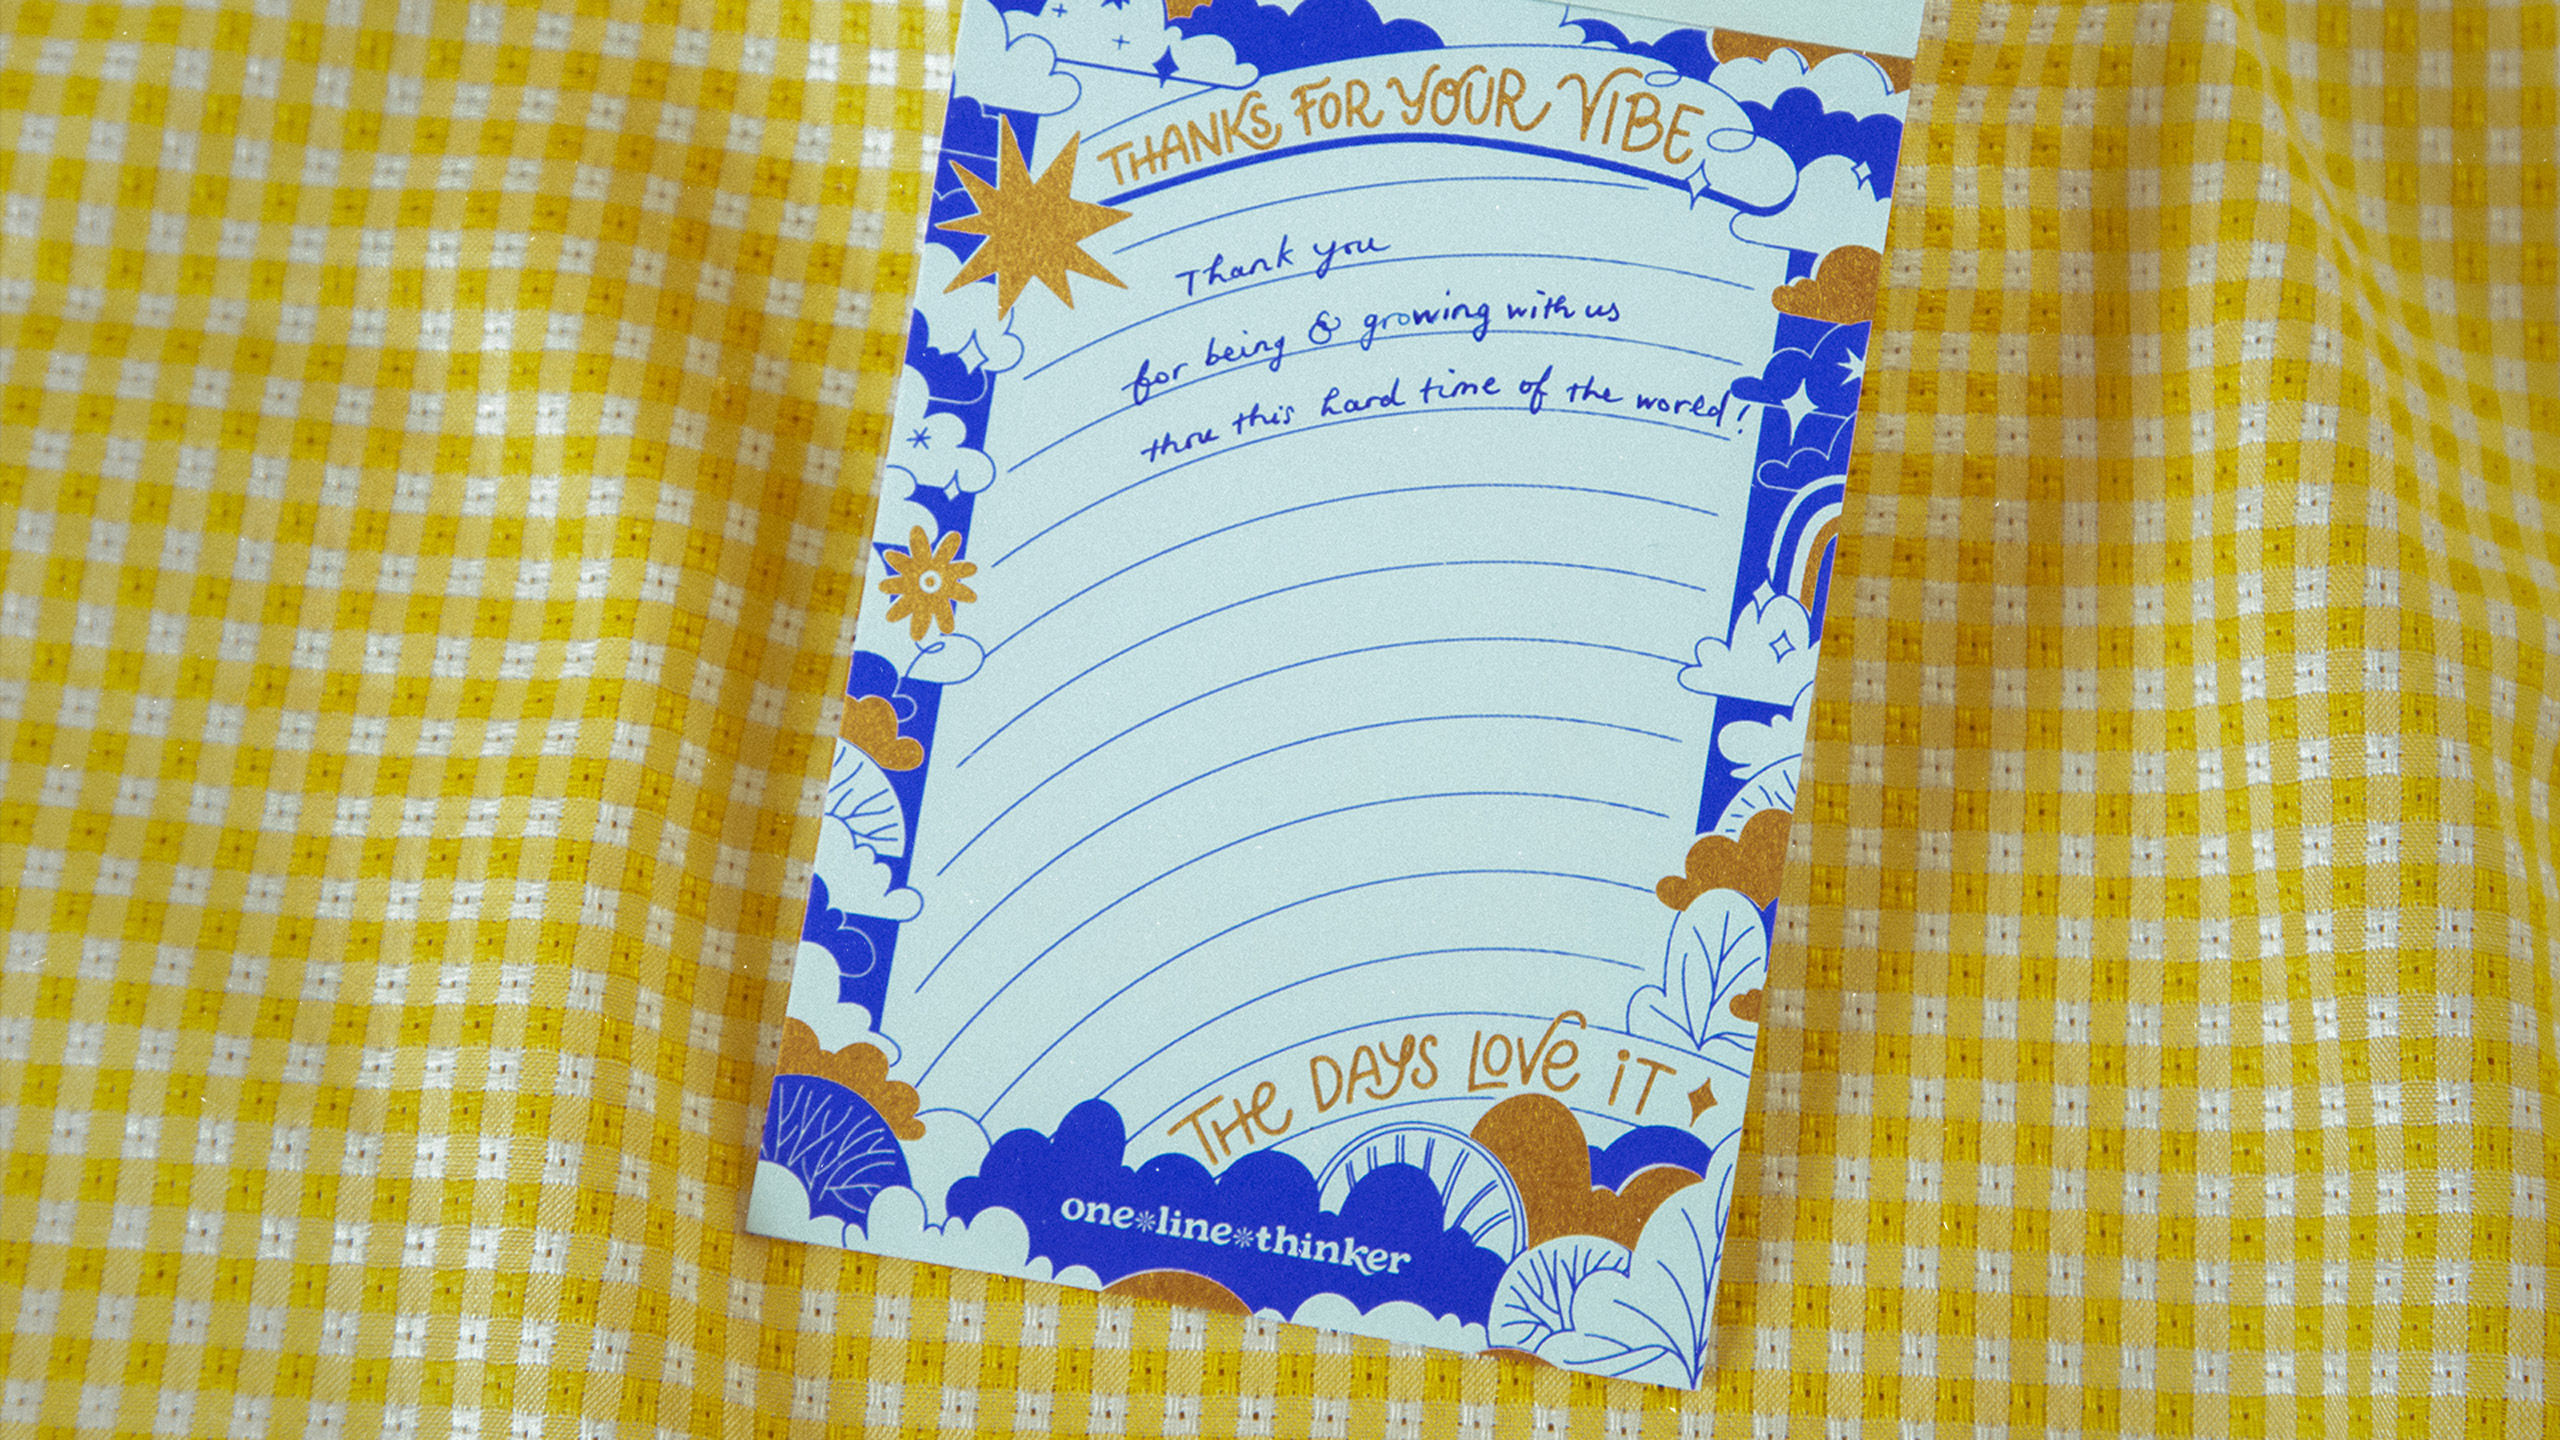 THANKS FOR YOUR VIBE
Thank you
for being & growing with us
throu this hard time of the world!
THE DAYS LOVE iT
one*line*thinker